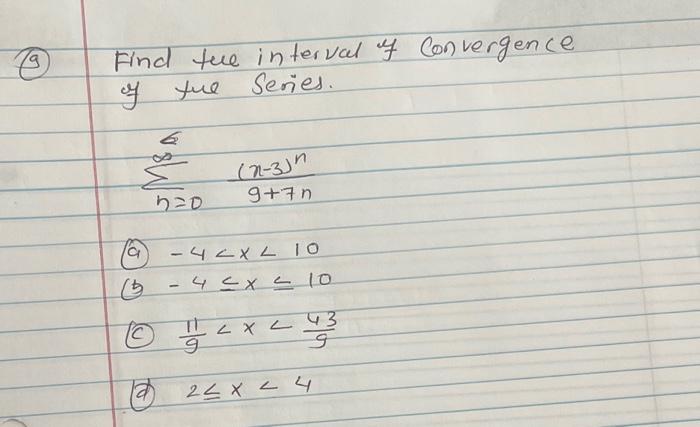 (9) Find the interval of Convergence
of the Series.
∞
Σ (x-3)^n / 9+7n
n=0
(a) -4 < x < 10
(b) -4 ≤ x ≤ 10
(c) 11/9 < x < 43/9
(d) 2 ≤ x < 4